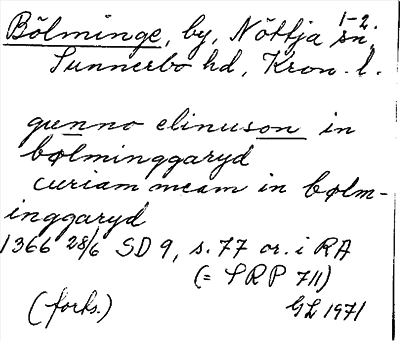 Bölminge, by, Nöttja sn, 1-2
Sunnerbo hd, Kron. l.
gunno elinuson in
bølminggaryd
curiam meam in bølm-
inggaryd
1366 28/6 SD 9, s. 77 or. i RA
(= SRP 711)
(forks.)
GL 1971